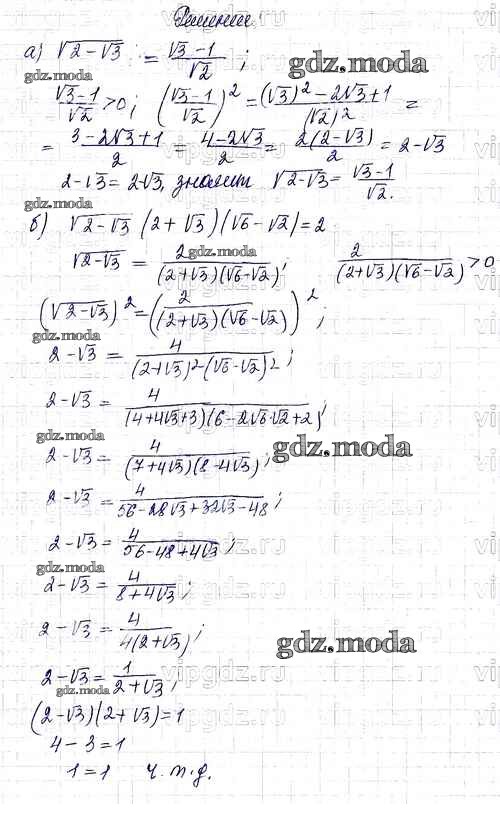 Решение.
а) √(2-√3) = (√3-1)/√2 ;
gdz.moda
gdz.moda
(√3-1)/√2 >0; ((√3-1)/√2)² = ((√3)²-2√3+1)/(√2)² =
= (3-2√3+1)/2 = (4-2√3)/2 = 2(2-√3)/2 = 2-√3
2-√3 = 2√3, значит √(2-√3) = (√3-1)/√2.
gdz.moda
б) √(2-√3) (2+√3)(√6-√2)=2
√(2-√3) = 2/((2+√3)(√6-√2)); 2/((2+√3)(√6-√2)) >0
(√(2-√3))² = (2/((2+√3)(√6-√2)))²;
2-√3 = 4/((2+√3)²(√6-√2)²;
2-√3 = 4/((4+4√3+3)(6-2√6√2+2);
gdz.moda
gdz.moda
2-√3 = 4/((7+4√3)(8-4√3);
2-√3 = 4/(56-28√3+32√3-48);
2-√3 = 4/(56-48+4√3);
gdz.moda
2-√3 = 4/(8+4√3);
2-√3 = 4/(4(2+√3));
gdz.moda
2-√3 = 1/(2+√3);
gdz.moda
(2-√3)(2+√3)=1
4-3=1
1=1 ч.т.д.
vipgdz.ru